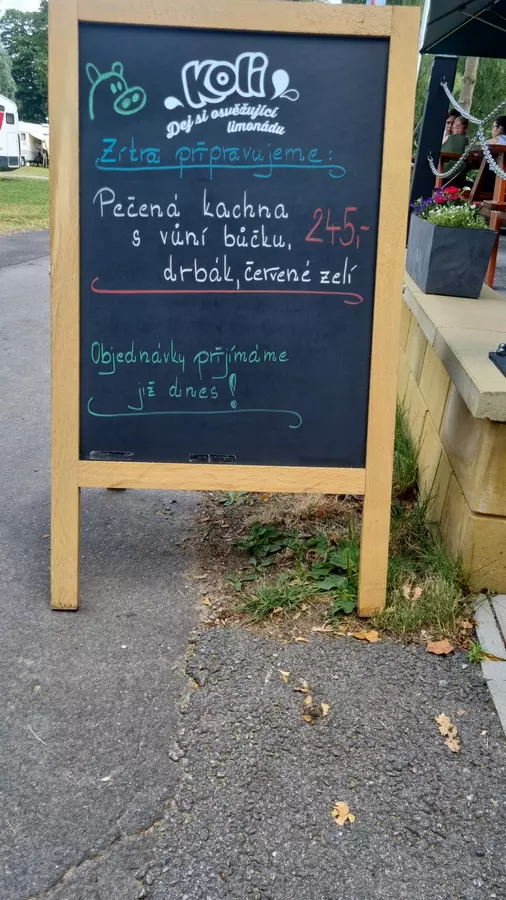 Koli
Dej si osvěžující
limonádu
Zítra připravujeme:
Pečená kachna
s vůní bůčku, 245,-
drbák, červené zelí
Objednávky přjímáme
již dnes!